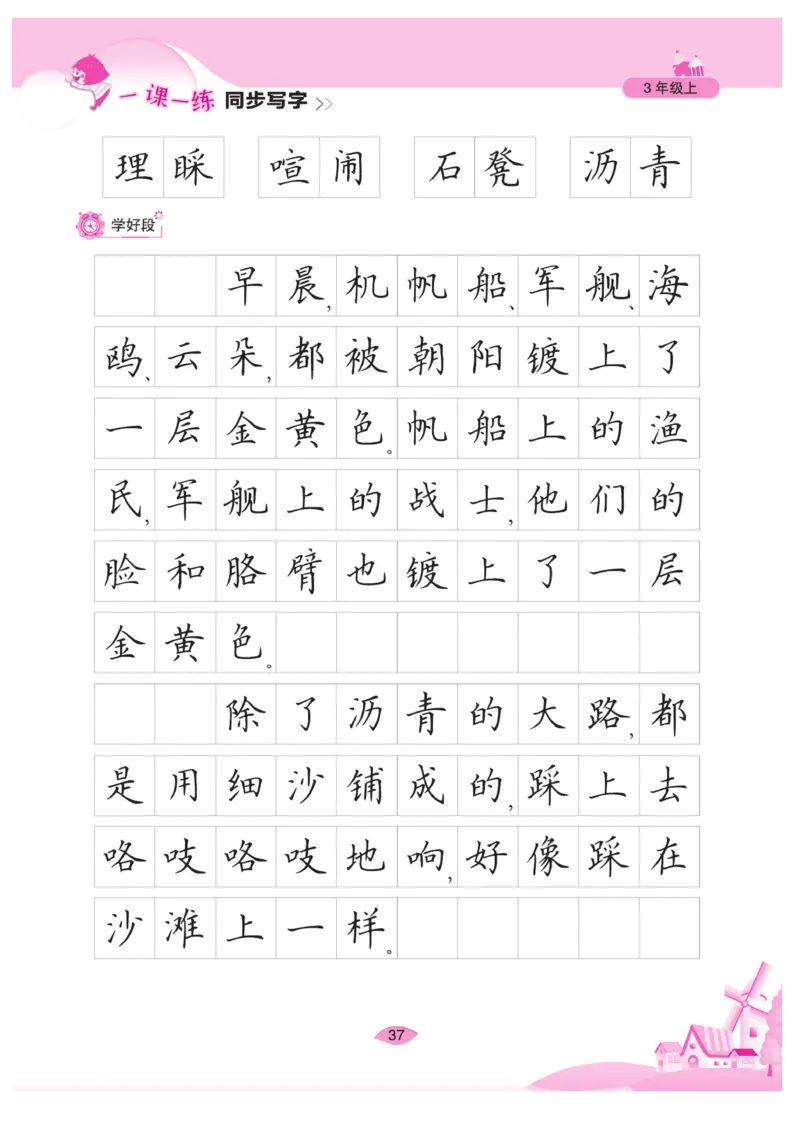 一课一练 同步写字
3年级上
理睬 喧闹 石凳 沥青
学好段
早晨,机帆船、军舰、海
鸥、云朵,都被朝阳镀上了
一层金黄色。帆船上的渔
民,军舰上的战士,他们的
脸和胳臂也镀上了一层
金黄色。
除了沥青的大路,都
是用细沙铺成的,踩上去
咯吱咯吱地响,好像踩在
沙滩上一样。
37